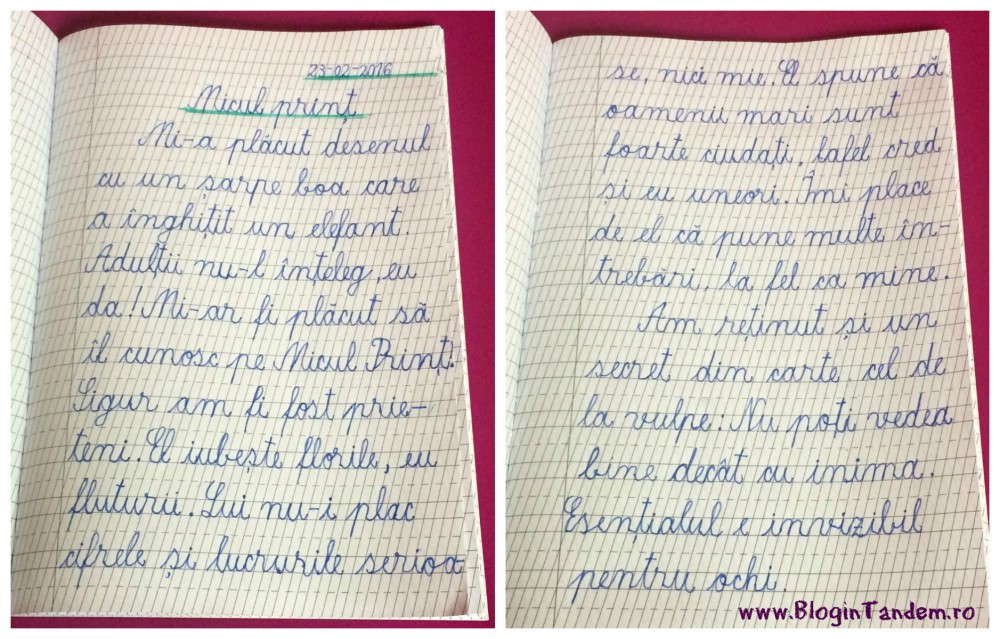 23-02-2016
Micul prinț
Mi-a plăcut desenul
cu un șarpe boa care
a înghițit un elefant.
Adulții nu-l înțeleg, eu
da! Mi-ar fi plăcut să
îl cunosc pe Micul Prinț.
Sigur am fi fost prie-
teni. El iubește florile, eu
fluturii. Lui nu-i plac
cifrele și lucrurile serioa-
se, nici mie. El spune că
oamenii mari sunt
foarte ciudați, lafel cred
și eu uneori. Îmi place
de el că pune multe în-
trebări, la fel ca mine.
Am reținut și un
secret din carte cel de
la vulpe. Nu poți vedea
bine decât cu inima.
Esențialul e invizibil
pentru ochi.
www.BloginTandem.ro